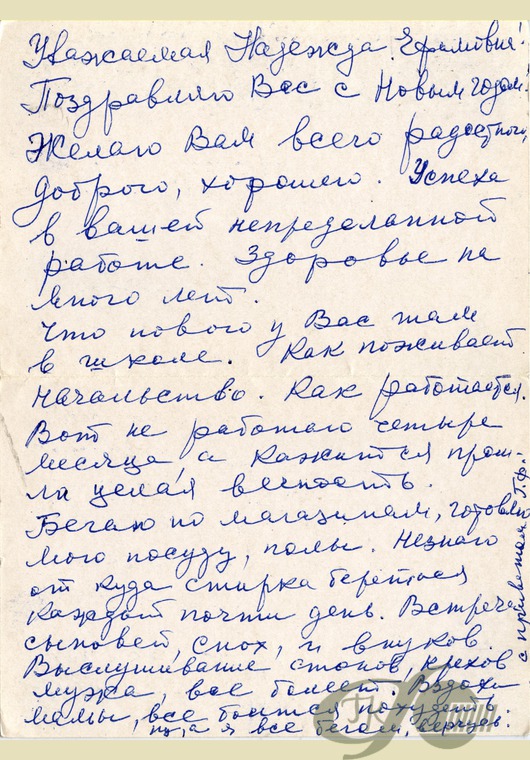 Уважаемая Надежда Ефимовна!
Поздравляю Вас с Новым годом!
Желаю Вам всего радостного,
доброго, хорошего. Успеха
в вашей непределанной
работе. Здоровье на
много лет.
Что нового у Вас там
в школе. Как поживает
начальство. Как работается.
Вот не работаю четыре
месяца, а кажится прош-
ла целая вечность.
Бегаю по магазинам, готовлю
мою посуду, полы. Незнаю
от куда стирка береться
каждый почти день. Встреча
сыновей, снох, и внуков.
Выслушивание стонов, крехов
мужа, все болеет. Вздохи
мамы, все боится похудеть.
ну, а я все бегаю,
с приветом Т.Ф.